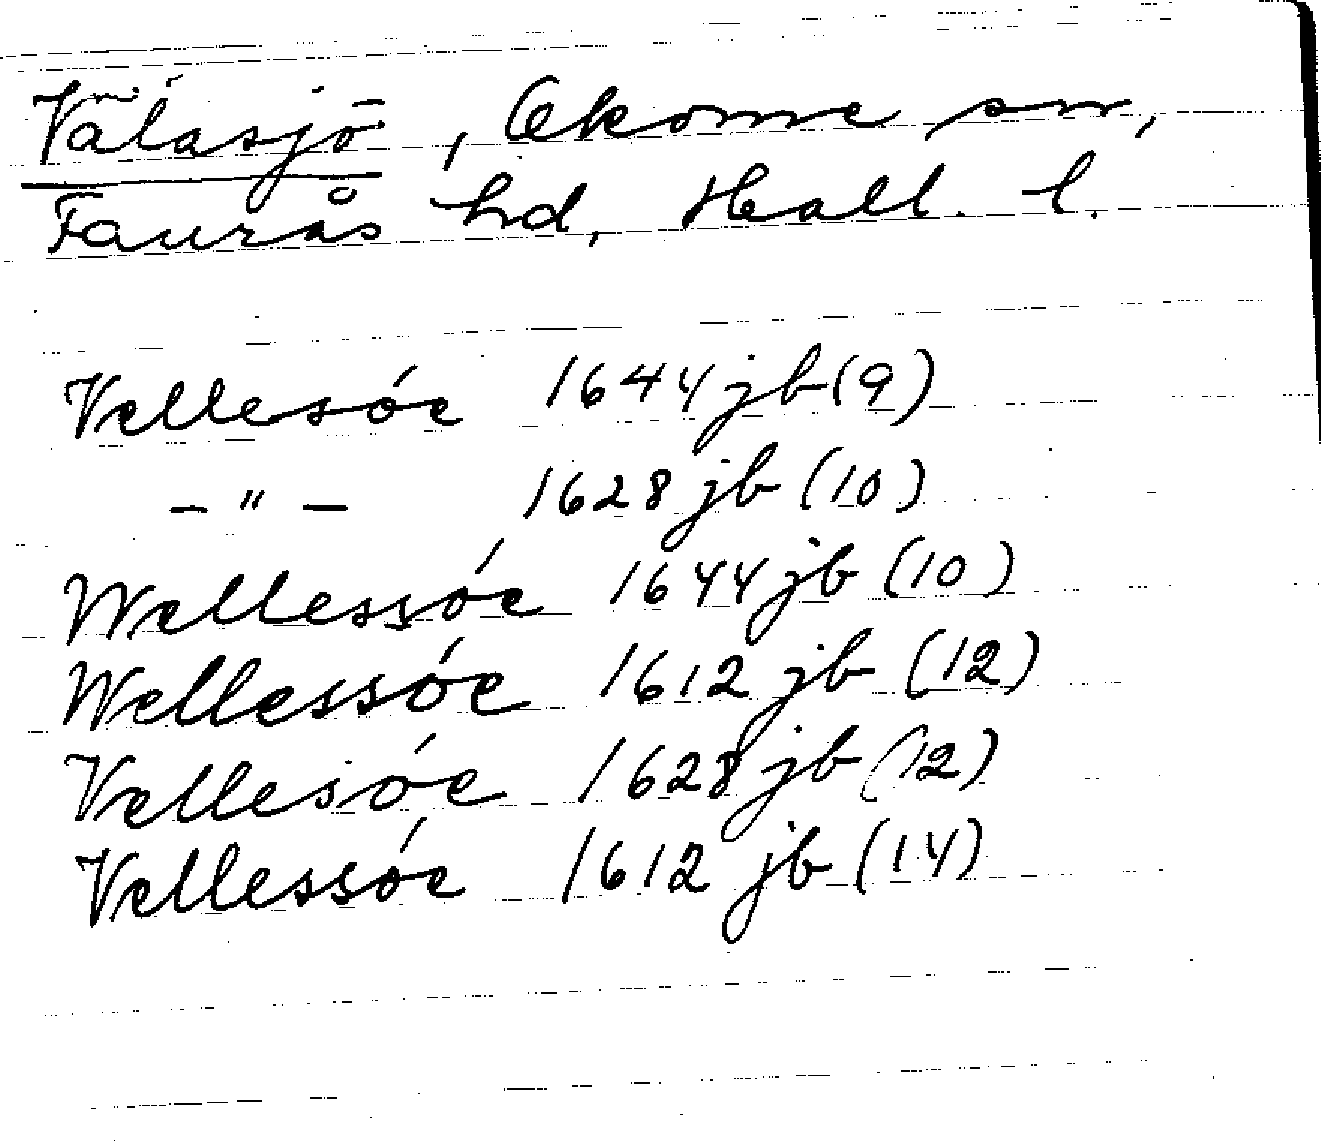 Välasjö, Okome sn,
Faurås hd, Hall. l.
Vellesóe 1644 jb (9)
— " — 1628 jb (10)
Wellessóe 1644 jb (10)
Wellessóe 1612 jb (12)
Vellesóe 1628 jb (12)
Vellessóe 1612 jb (14)